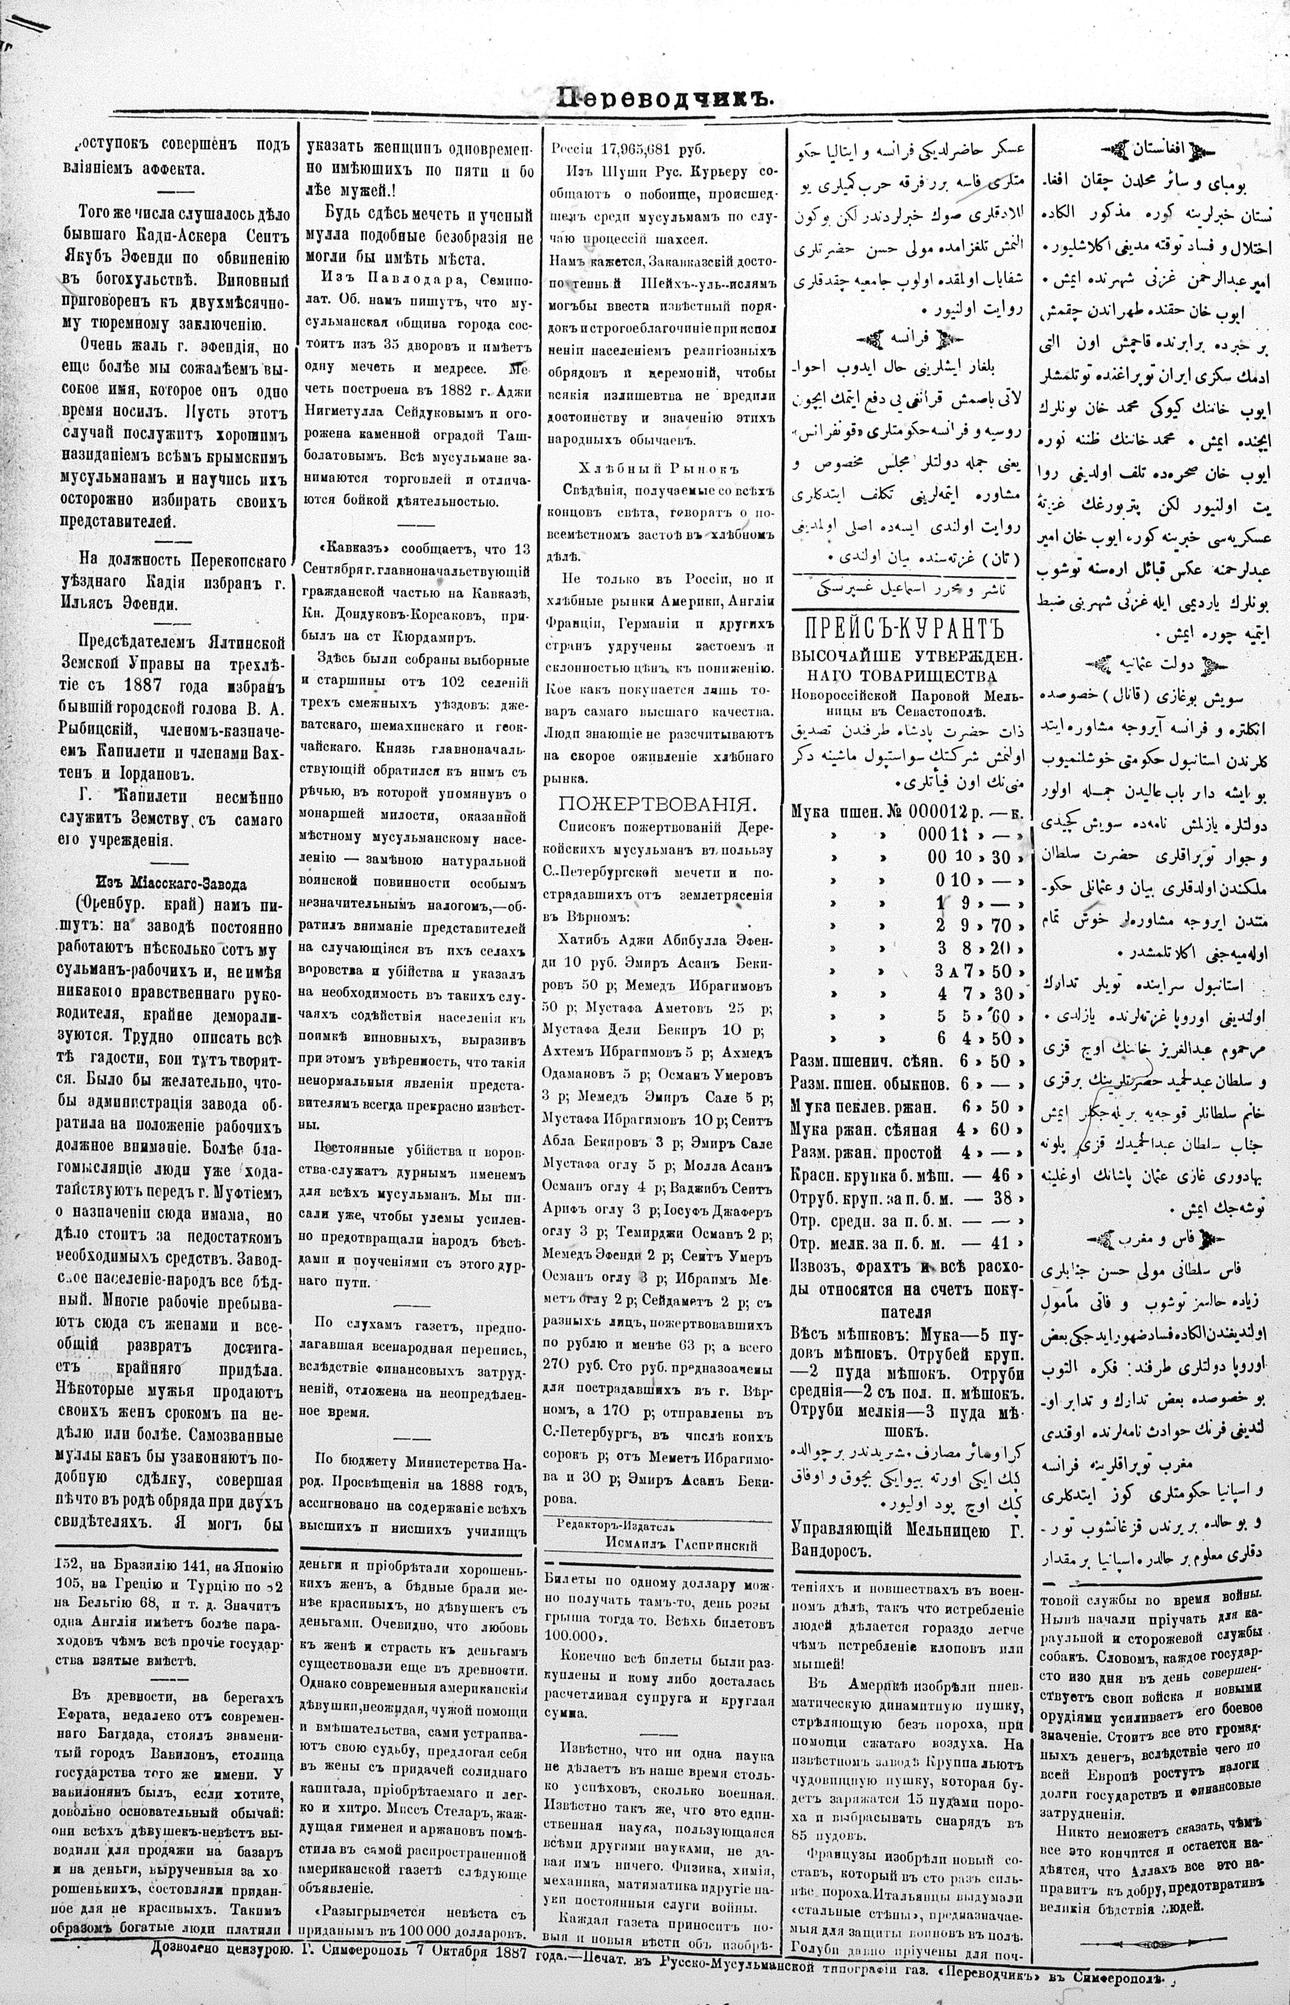 Переводчикъ.
поступокъ совершенъ подъ
вліяніемъ аффекта.
Того же числа слушалось дѣло
бывшаго Кади-Аскера Сеитъ
Якубъ Эфенди по обвиненію
въ богохульствѣ. Виновный
приговоренъ къ двухмѣсячно-
му тюремному заключенію.
Очень жаль г. эфендія, но
еще болѣе мы сожалѣемъ вы-
сокое имя, которое онъ одно
время носилъ. Пусть этотъ
случай послужитъ хорошимъ
назиданіемъ всѣмъ крымскимъ
мусульманамъ и научись ихъ
осторожно избирать своихъ
представителей.
На должность Перекопскаго
уѣзднаго Кадія избранъ г.
Ильясъ Эфенди.
Предсѣдателемъ Ялтинской
Земской Управы на трехлѣ-
тіе съ 1887 года избранъ
бывшій городской голова В. А.
Рыбицскій, членомъ-казначе-
емъ Капилети и членами Вах-
тенъ и Іордановъ.
Г. Капилети несмѣнно
служитъ Земству, съ самаго
его учрежденія.
Изъ Міасскаго-Завода
(Оренбур. край) намъ пи-
шутъ: на заводѣ постоянно
работаютъ нѣсколько сотъ му
сульманъ-рабочихъ и, не имѣя
никакого нравственнаго руко-
водителя, крайне деморали-
зуются. Трудно описать всѣ
тѣ гадости, кои тутъ творят-
ся. Было бы желательно, что-
бы администрація завода об-
ратила на положеніе рабочихъ
должное вниманіе. Болѣе бла-
гомыслящіе люди уже хода-
тайствуютъ передъ г. Муфтіемъ
о назначеніи сюда имама, но
дѣло стоитъ за недостаткомъ
необходимыхъ средствъ. Завод-
ское населеніе-народъ все бѣд-
ный. Многіе рабочіе пребыва-
ютъ сюда съ женами и все-
общій развратъ достига-
етъ крайняго придѣла.
Нѣкоторые мужья продаютъ
своихъ женъ срокомъ на не-
дѣлю или болѣе. Самозванные
муллы какъ бы узаконяютъ по-
добную сдѣлку, совершая
нѣчто въ родѣ обряда при двухъ
свидѣтеляхъ. Я могъ бы
указать женщинъ одновремен-
но имѣющихъ по пяти и бо
лѣе мужей.!
Будь сдѣсь мечеть и ученый
мулла подобные безобразія не
могли бы имѣть мѣста.
Изъ Павлодара, Семипо-
лат. Об. намъ пишутъ, что му-
сульманская община города сос-
тоитъ изъ 35 дворовъ и имѣетъ
одну мечеть и медресе. Ме-
четь построена въ 1882 г. Аджи
Нигметулла Сейдуковымъ и ого-
рожена каменной оградой Таш-
болатовымъ. Всѣ мусульмане за-
нимаются торговлей и отлича-
ются бойкой дѣятельностью.
«Кавказъ» сообщаетъ, что 13
Сентября г. главноначальствующій
гражданской частью на Кавказѣ,
Кн. Дондуковъ-Корсаковъ, при-
былъ на ст Кюрдамиръ.
Здѣсь были собраны выборные
и старшины отъ 102 селеній
трехъ смежныхъ уѣздовъ: дже-
ватскаго, шемахинскаго и геок-
чайскаго. Князь главноначаль-
ствующій обратился къ нимъ съ
рѣчью, въ которой упомянувъ о
монаршей милости, оказанной
мѣстному мусульманскому насе-
ленію — замѣною натуральной
воинской повинности особымъ
незначительнымъ налогомъ,—об-
ратилъ вниманіе представителей
на случающіяся въ ихъ селахъ
воровства и убійства и указалъ
на необходимость въ такихъ слу-
чаяхъ содѣйствія населенія къ
поимкѣ виновныхъ, выразивъ
при этомъ увѣренность, что такія
ненормальныя явленія предста-
вителямъ всегда прекрасно извѣст-
ны.
Постоянные убійства и воров-
ства-служатъ дурнымъ именемъ
для всѣхъ мусульманъ. Мы пи-
сали уже, чтобы улемы усилен-
но предотвращали народъ бѣсѣ-
дами и поученіями съ этого дур-
наго пути.
По слухамъ газетъ, предпо-
лагавшая всенародная перепись,
вслѣдствіе финансовыхъ затруд-
неній, отложена на неопредѣлен-
ное время.
По бюджету Министерства На-
род. Просвѣщенія на 1888 годъ,
ассигновано на содержаніе всѣхъ
высшихъ и нисшихъ училищъ
Россіи 17,965,681 руб.
Изъ Шуши Рус. Курьеру со-
общаютъ о побоище, происшед-
шемъ среди мусульмамъ по слу-
чаю процессій шахсея.
Намъ кажется, Закавказскій досто-
почтенный Шейхъ-уль-ислямъ
могъбы ввести извѣстный поря-
докъ и строгое благочиніе при испол
неніи населеніемъ религіозныхъ
обрядовъ и церемоній, чтобы
всякія излишевтва не вредили
достоинству и значенію этихъ
народныхъ обычаевъ.
Хлѣбный Рынокъ
Свѣденія, получаемые со всѣхъ
концовъ свѣта, говорятъ о по-
всемѣстномъ застоѣ въ хлѣбномъ
дѣлѣ.
Не только въ Россіи, но и
хлѣбные рынки Америки, Англіи
Франціи, Германіи и другихъ
странъ удручены застоемъ и
склонностью цѣнъ, къ пониженію.
Кое какъ покупается лишь то-
варъ самаго высшаго качества.
Люди знающіе не разсчитываютъ
на скорое оживленіе хлѣбнаго
рынка.
ПОЖЕРТВОВАНІЯ.
Списокъ пожертвованій Дере-
койскихъ мусульманъ въ пользу
С.-Петербургской мечети и по-
страдавшихъ отъ землетрясенія
въ Вѣрномъ:
Хатибъ Аджи Абибулла Эфен-
ди 10 руб. Эмиръ Асанъ Беки-
ровъ 50 р; Мемедъ Ибрагимовъ
50 р; Мустафа Аметовъ 25 р;
Мустафа Дели Бекиръ 10 р;
Ахтемъ Ибрагимовъ 5 р; Ахмедъ
Одамановъ 5 р; Османъ Умеровъ
3 р; Мемедъ Эмиръ Сале 5 р;
Мустафа Ибрагимовъ 10 р; Сеитъ
Абла Бекировъ 3 р; Эмиръ Сале
Мустафа оглу 5 р; Молла Асанъ
Османъ оглу 4 р; Ваджибъ Сеитъ
Арифъ оглу 3 р; Іосуфъ Джаферъ
оглу 3 р; Темирджи Османъ 2 р;
Мемедъ Эфенди 2 р; Сеитъ Умеръ
Османъ оглу 3 р; Ибраимъ Ме-
метъ оглу 2 р; Сейдаметъ 2 р; съ
разныхъ лицъ, пожертвовавшихъ
по рублю и менѣе 63 р; а всего
270 руб. Сто руб. предназначены
для пострадавшихъ въ г. Вѣр-
номъ, а 170 р; отправлены въ
С.-Петербургъ, въ числѣ коихъ
сорокъ р; отъ Меметъ Ибрагимо-
ва и 30 р; Эмиръ Асанъ Беки-
рова.
Редакторъ-Издатель
Исмаилъ Гаспринскій
عسكر حاضرلديكى فرانسه و ايتاليا حكو
متلرى فاسه برر فرقه حرب كميلرى يو
للادقلرى صوك خبرلردندر لكن بوكون
النمش تلغرامده مولى حسن حضرتلرى
شفاياب اولمقده اولوب جامعيه چقدقلرى
روايت اولنيور .
فرانسه
بلغار ايشلرينى حال ايدوب احوا-
لاتى باصمش قرانغى يى دفع ايتمك ايچون
روسيه و فرانسه حكومتلرى «قونفرانس»
يعنى جمله دولتلر مجلس مخصوص و
مشاوره ايتمه‌لرينى تكلف ايتدكلرى
روايت اولندى ايسه‌ده اصلى اولمديغى
(تان) غزته‌سنده بيان اولندى .
ناشر و محرر اسماعيل غسپرنسكى
ПРЕЙСЪ-КУРАНТЪ
ВЫСОЧАЙШЕ УТВЕРЖДЕН-
НАГО ТОВАРИЩЕСТВА
Новороссійской Паровой Мель-
ницы въ Севастополѣ.
ذات حضرت پادشاه طرفندن تصديق
اولنمش شركتك سواستپول ماشينه دكر
منى‌نك اون فياتلرى.
Мука пшен. № 0000 12 р. — к.
» » 000 11 » — »
» » 00 10 » 30 »
» » 0 10 » — »
» » 1 9 » — »
» » 2 9 » 70 »
» » 3 8 » 20 »
» » 3 А 7 » 50 »
» » 4 7 » 30 »
» » 5 5 » 60 »
» » 6 4 » 50 »
Разм. пшенич. сѣян. 6 » 50 »
Разм. пшен. обыкнов. 6 » — »
Мука пеклев. ржан. 6 » 50 »
Мука ржан. сѣяная 4 » 60 »
Разм. ржан. простой 4 » — »
Красн. крупка б. мѣш. — 46 »
Отруб. круп. за п. б. м. — 38 »
Отр. средн. за п. б. м. — — »
Отр. мелк. за п. б. м. — 41 »
Извозъ, фрахтъ и всѣ расхо-
ды относятся на счетъ поку-
пателя
Вѣсъ мѣшковъ: Мука—5 пу-
довъ мѣшокъ. Отрубей круп.
—2 пуда мѣшокъ. Отруби
среднія—2 съ пол. п. мѣшокъ.
Отруби мелкія—3 пуда мѣ-
шокъ.
كرا وسائر مصارف مشتريدندر بر چوالده
كپك ايكى اورته بيوايكى بچوق و اوفاق
كپك اوچ پود اوليور.
Управляющій Мельницею Г.
Вандоросъ.
افغانستان
بومباى و سائر محلدن چقان افغا-
نستان خبرلرينه كوره مذكور الكاده
اختلال و فساد توقته مديغى اكلاشليور .
امير عبدالرحمن غزنى شهرنده ايمش .
ايوب خان حقنده طهراندن چقمش
بر خبرده برابرنده قاچمش اون التى
ادمك سكزى ايران توپراغنده توتلمشلر
ايوب خاننك كيوكى محمد خان بونلرك
ايچنده ايمش . محمد خاننك ظننه نوره
ايوب خان صحره‌ده تلف اولديغى روا
يت اولنيور لكن پتربورغك غزتهٔ
عسكريه‌سى خبرينه كوره ايوب خان امير
عبدلرحمنه عكس قبائل اره‌سنه توشوب
بونلرك يارديمى ايله غزنى شهرينى ضبط
ايتميه چوره ايمش .
دولت عثمانيه
سويش بوغازى (قانال) خصوصده
انكلتره و فرانسه آيروجه مشاوره ايتد
كلرندن استانبول حكومتى خوشلنميوب
بو ايشه دائر باب عاليدن جمله اولور
دولتلره يازلمش نامه‌ده سويش كچيدى
و جوار توپراقلرى حضرت سلطان
ملكندن اولدقلرى بيان و عثمانلى حكو-
متندن ايروجه مشاوره‌لر خوش تمام
اوله‌ميه‌جغى اكلاتلمشدر .
استانبول سراينده تويلر تدارك
اولنديغى اوروپا غزته‌لرنده يازلدى .
مرحوم عبدالعزيز خاننك اوچ قزى
و سلطان عبدالحميد حضرتلرينك بر قزى
خانم سلطانلر قوجه‌يه بريله‌جكلر ايمش
جناب سلطان عبدالحميدك قزى پلونه
بهادورى غازى عثمان پاشانك اوغلينه
توشه‌جك ايمش .
فاس و مغرب
فاس سلطانى مولى حسن جنابلرى
زياده حالسز توشوب و فاتى مأمول
اولنديغندن الكاده فساد ضهور ايدجكى بعض
اوروپا دولتلرى طرفند: فكره التوب
بو خصوصده بعض تدارك و تدابر او-
لنديغى فرنك حوادث نامه‌لرنده اوقندى
مغرب توپراقلرينه فرانسه
و اسپانيا حكومتلرى كوز ايتدكلرى
و بو حالده بر برندن قزغانشوب تور-
دقلرى معلوم بر حالدره اسپانيا بر مقدار
152, на Бразилію 141, на Японію
105, на Грецію и Турцію по 82
на Бельгію 68, и т. д. Значитъ
одна Англія имѣетъ болѣе пара-
ходовъ чѣмъ всѣ прочіе государ-
ства взятые вмѣстѣ.
Въ древности, на берегахъ
Ефрата, недалеко отъ современ-
наго Багдада, стоялъ знамени-
тый городъ Вавилонъ, столица
государства того же имени. У
вавилонянъ былъ, если хотите,
довольно основательный обычай:
они всѣхъ дѣвушекъ-невѣстъ вы-
водили для продажи на базаръ
и на деньги, вырученныя за хо-
рошенькихъ, состовляли придан-
ное для не красивыхъ. Такимъ
образомъ богатые люди платили
деньги и пріобрѣтали хорошень-
кихъ женъ, а бѣдные брали ме-
нѣе красивыхъ, но дѣвушекъ съ
деньгами. Очевидно, что любовь
къ женѣ и страсть къ деньгамъ
существовали еще въ древности.
Однако современныя американскія
дѣвушки, неожидая, чужой помощи
и вмѣшательства, сами устраива-
ютъ свою судьбу, предлогая себя
въ жены съ придачей солиднаго
капитала, пріобрѣтаемаго и лег-
ко и хитро. Миссъ Стеларъ, жаж-
дущая гименея и аржановъ помѣ-
стила въ самой распространенной
американской газетѣ слѣдующе
объявленіе.
«Разыгрывается невѣста съ
приданымъ въ 100 000 долларовъ.
Билеты по одному доллару мож-
но получать тамъ-то, день розы
грыша тогда то. Всѣхъ билетовъ
100.000».
Конечно всѣ билеты были раз-
куплены и кому либо досталась
расчетливая супруга и круглая
сумма.
Извѣстно, что ни одна наука
не дѣлаетъ въ наше время столь-
ко успѣховъ, сколько военная.
Извѣстно такъ же, что это един-
ственная наука, пользующаяся
всѣми другими науками, не да-
вая имъ ничего. Физика, химія,
механика, матиматика и другіе на-
уки постоянныя слуги войны.
Каждая газета приноситъ но-
выя и новыя вѣсти объ изобрѣ-
теніяхъ и новшествахъ въ воен-
номъ дѣлѣ, такъ что истребленіе
людей дѣлается гораздо легче
чѣмъ истребленіе клоповъ или
мышей!
Въ Америкѣ изобрѣли пнев-
матическую динамитную пушку,
стрѣляющую безъ пороха, при
помощи сжатаго воздуха. На
извѣстномъ заводѣ Круппа льютъ
чудовищную пушку, которая бу-
детъ заряжатся 15 пудами поро-
ха и выбрасывать снарядъ въ
85 пудовъ.
Французы изобрѣли новый со-
ставъ, который въ сто разъ силь-
нѣе пороха. Итальянцы выдумали
«стальные стѣны», предназначае-
мыя для защиты воиновъ въ полѣ.
Голуби давно пріучены для поч-
товой службы во время войны.
Нынѣ начали пріучать для ка-
раульной и сторожевой службы
собакъ. Словомъ, каждое государ-
сто изо дня въ день совершен-
ствуетъ свои войска и новыми
орудіями усиливаетъ его боевое
значеніе. Стоитъ все это громад-
ныхъ денегъ, вслѣдствіе чего по
всей Европѣ ростутъ налоги
долги государствъ и финансовые
затрудненія.
Никто неможетъ сказать, чѣмъ
все это кончится и остается на-
дѣятся, что Аллахъ все это на-
правитъ къ добру, предотвративъ
великія бѣдствія людей.
Дозволено цензурою. Г. Симферополь 7 Октября 1887 года.—Печат. въ Русско-Мусульманской типографіи газ. «Переводчикъ» въ Симферополѣ.